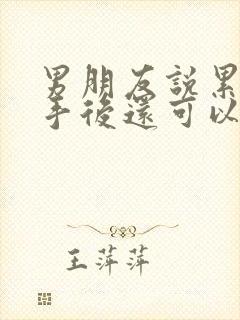 男朋友説累
手後還可以
王萍萍